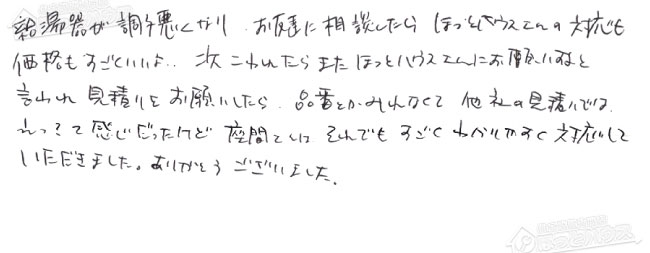 給湯器が調子悪くなり、お友達に相談したら ほっとハウスさんの対応も
価格もすごくいいよ.. 次こわれたらまたほっとハウスさんにお願いすると
言われ見積りをお願いしたら、品番とかみれなくて 他社の見積りでは、
えっ?て感じだったけど それでもすごくわかりやすく対応して
いただきました。ありがとうございました。
ほっとハウス